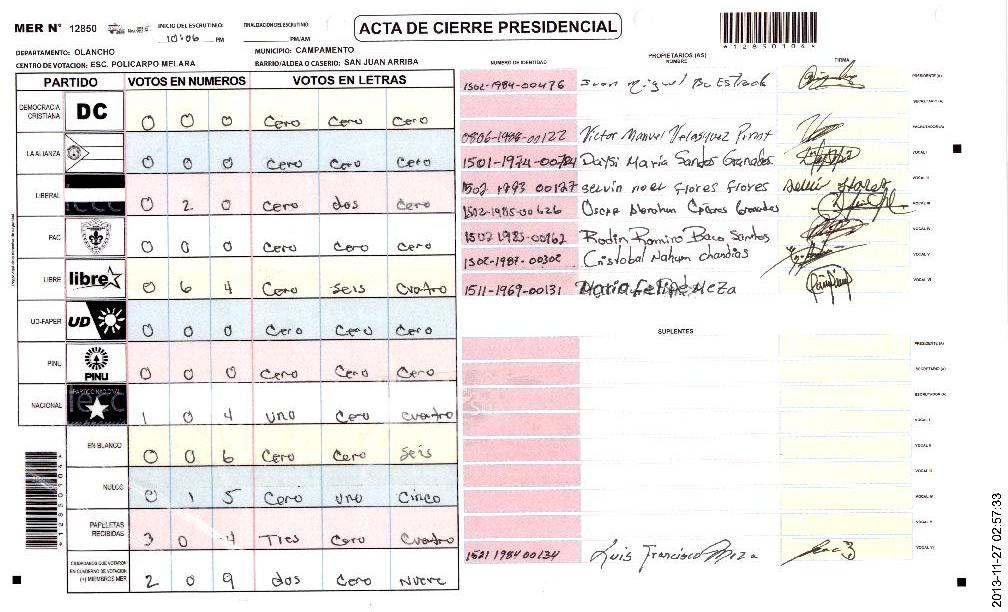 MER N° 12850
INICIO DEL ESCRUTINIO:
10:06 PM
FINALIZACION DEL ESCRUTINIO
PM/AM
ACTA DE CIERRE PRESIDENCIAL
*12850106*
DEPARTAMENTO: OLANCHO
MUNICIPIO: CAMPAMENTO
CENTRO DE VOTACION: ESC. POLICARPO MELARA
BARRIO/ALDEA O CASERIO: SAN JUAN ARRIBA
PARTIDO VOTOS EN NUMEROS VOTOS EN LETRAS
DEMOCRACIA CRISTIANA DC 0 0 0 Cero Cero Cero
LA ALIANZA 0 0 0 Cero Cero Cero
LIBERAL 0 2 0 Cero dos Cero
PAC 0 0 0 Cero Cero Cero
LIBRE libre 0 6 4 Cero Seis Cuatro
UD-FAPER UD 0 0 0 Cero Cero Cero
PINU PINU 0 0 0 Cero Cero Cero
NACIONAL PARTIDO NACIONAL 1 0 4 Uno Cero Cuatro
EN BLANCO 0 0 6 Cero Cero Seis
NULOS 0 1 5 Cero Uno Cinco
PAPELETAS RECIBIDAS 3 0 4 Tres Cero Cuatro
CIUDADANOS QUE VOTARON EN CUADERNO DE VOTACION (+) MIEMBROS MER 2 0 9 dos Cero Nueve
PROPIETARIOS (AS)
NUMERO DE IDENTIDAD NOMBRE FIRMA
1502-1984-00476 Juan Miguel Estrada PRESIDENTE (A)
SECRETARIO (A)
0806-1988-00122 Victor Manuel Velasquez ESCRUTADOR (A)
1501-1974-00724 Daysi Maria Santos Granados VOCAL I
1502 1993 00127 selvin noel flores flores VOCAL II
1502-1985-00626 Oscar Abraham Granados VOCAL III
1502 1985-00162 Rodin Romiro Baca Santos VOCAL IV
1502-1987-00302 Cristobal Nahum chandias VOCAL V
1511-1969-00131 Maria Felipe Meza VOCAL VI
SUPLENTES
PRESIDENTE (A)
SECRETARIO (A)
ESCRUTADOR (A)
VOCAL I
VOCAL II
VOCAL III
VOCAL IV
VOCAL V
1521 1984 00134 Luis Francisco Meza VOCAL VI
2013-11-27 02:57:33